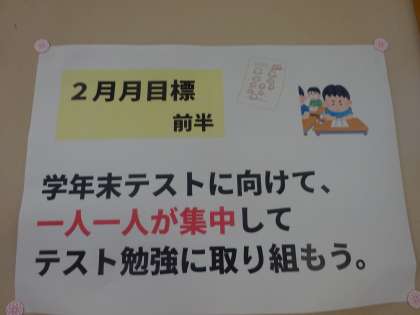 ２月月目標
前半
学年末テストに向けて、
一人一人が集中して
テスト勉強に取り組もう。